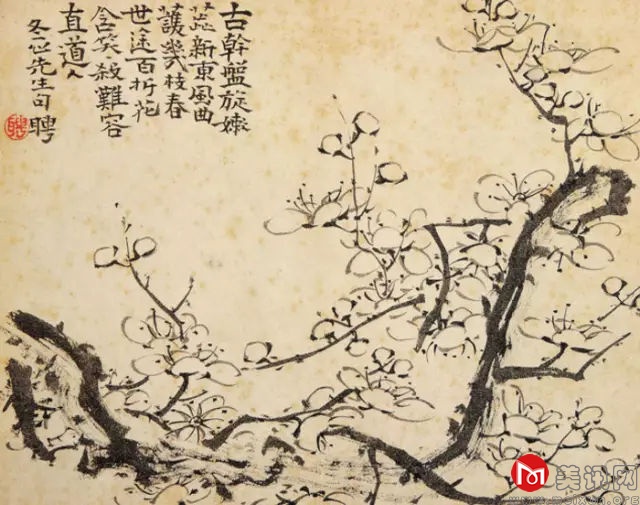 古幹盤旋嫩
蕊新東風曲
護幾枝春
世途百折花
含笑殺難容
直道人
冬心先生句 聘
聘
美讯网